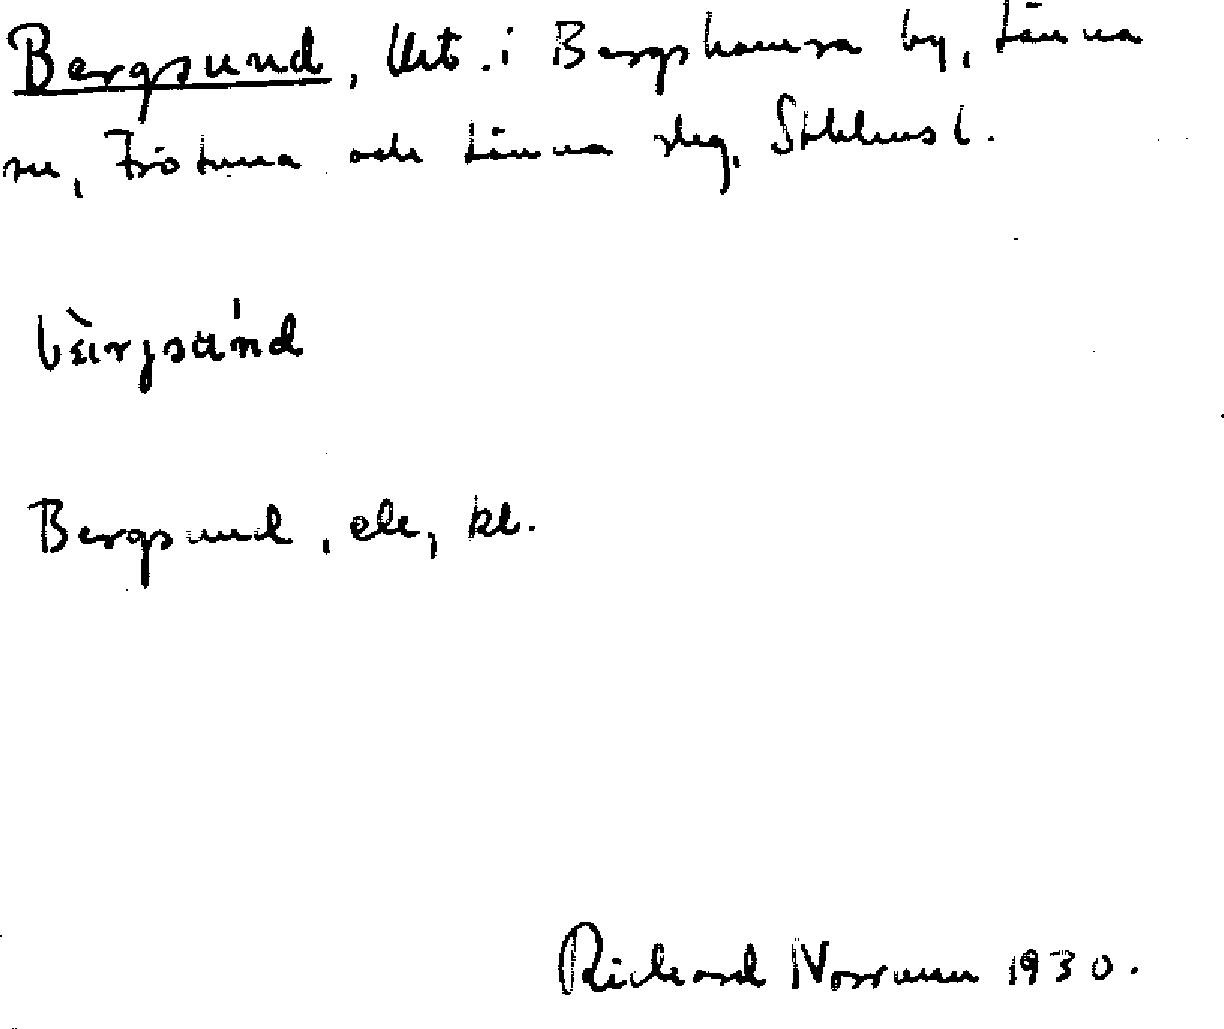 Bergsund, lht. i Bergshamra by, Länna
sn, Frötuna och Länna slg, Sthlms l.
bæ̀rjsún̍d
Bergsund, ek, kl.
Richard Norrman 1930.